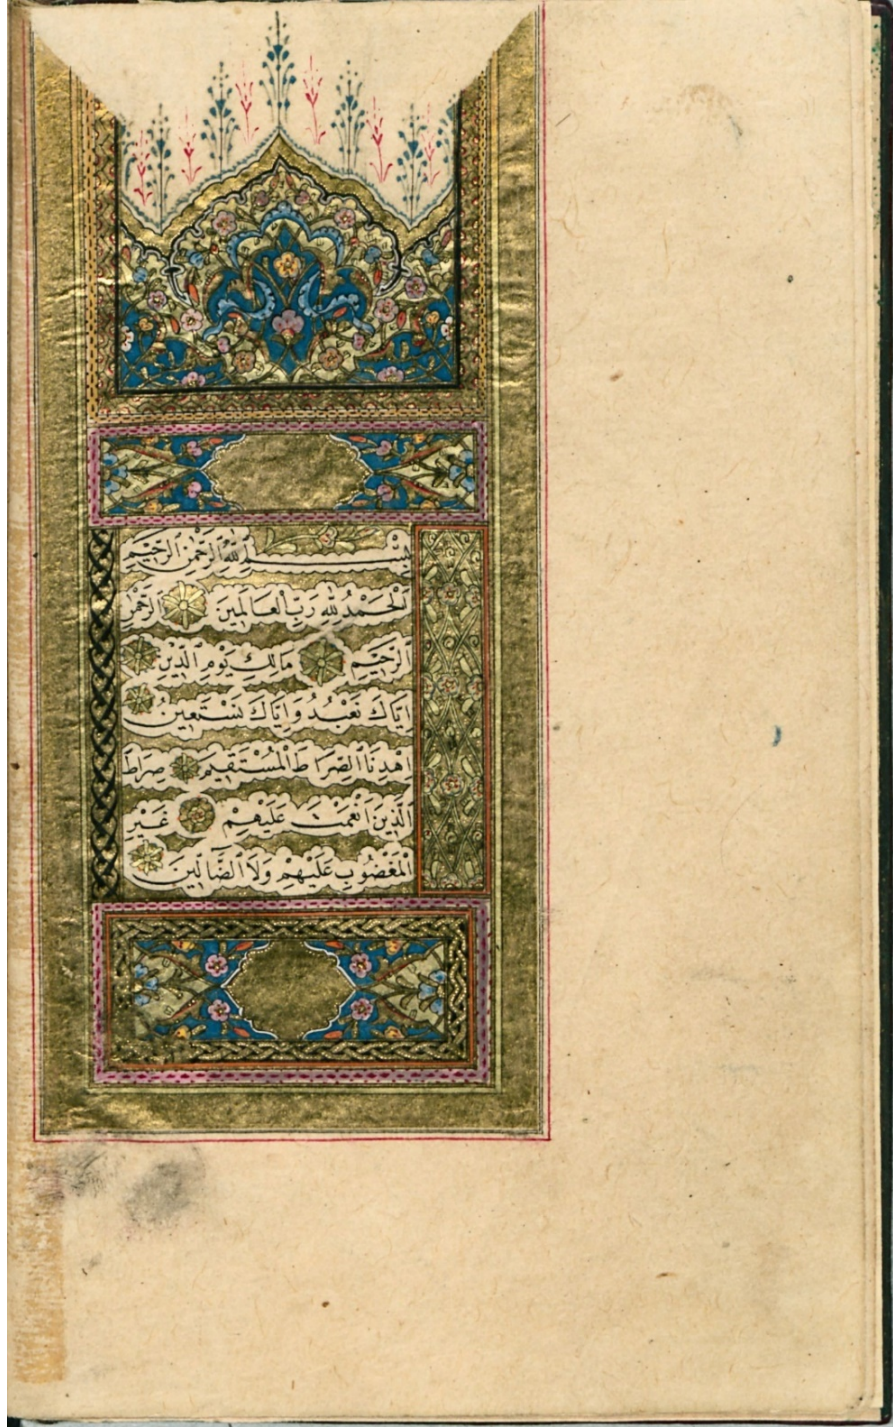 بِسْــــمِ اللهِ الرَّحْمٰنِ الرَّحٖيمِ
اَلْحَمْدُ لِلّٰهِ رَبِّ الْعَالَمٖينَ اَلرَّحْمٰنِ
الرَّحٖيمِ مَالِكِ يَوْمِ الدّٖينِ
اِيَّاكَ نَعْبُدُ وَاِيَّاكَ نَسْتَعٖينُ
اِهْدِنَا الصِّرَاطَ الْمُسْتَقٖيمَ صِرَاطَ
الَّذٖينَ اَنْعَمْتَ عَلَيْهِمْ غَيْرِ
الْمَغْضُوبِ عَلَيْهِمْ وَلَا الضَّٓالّٖينَ